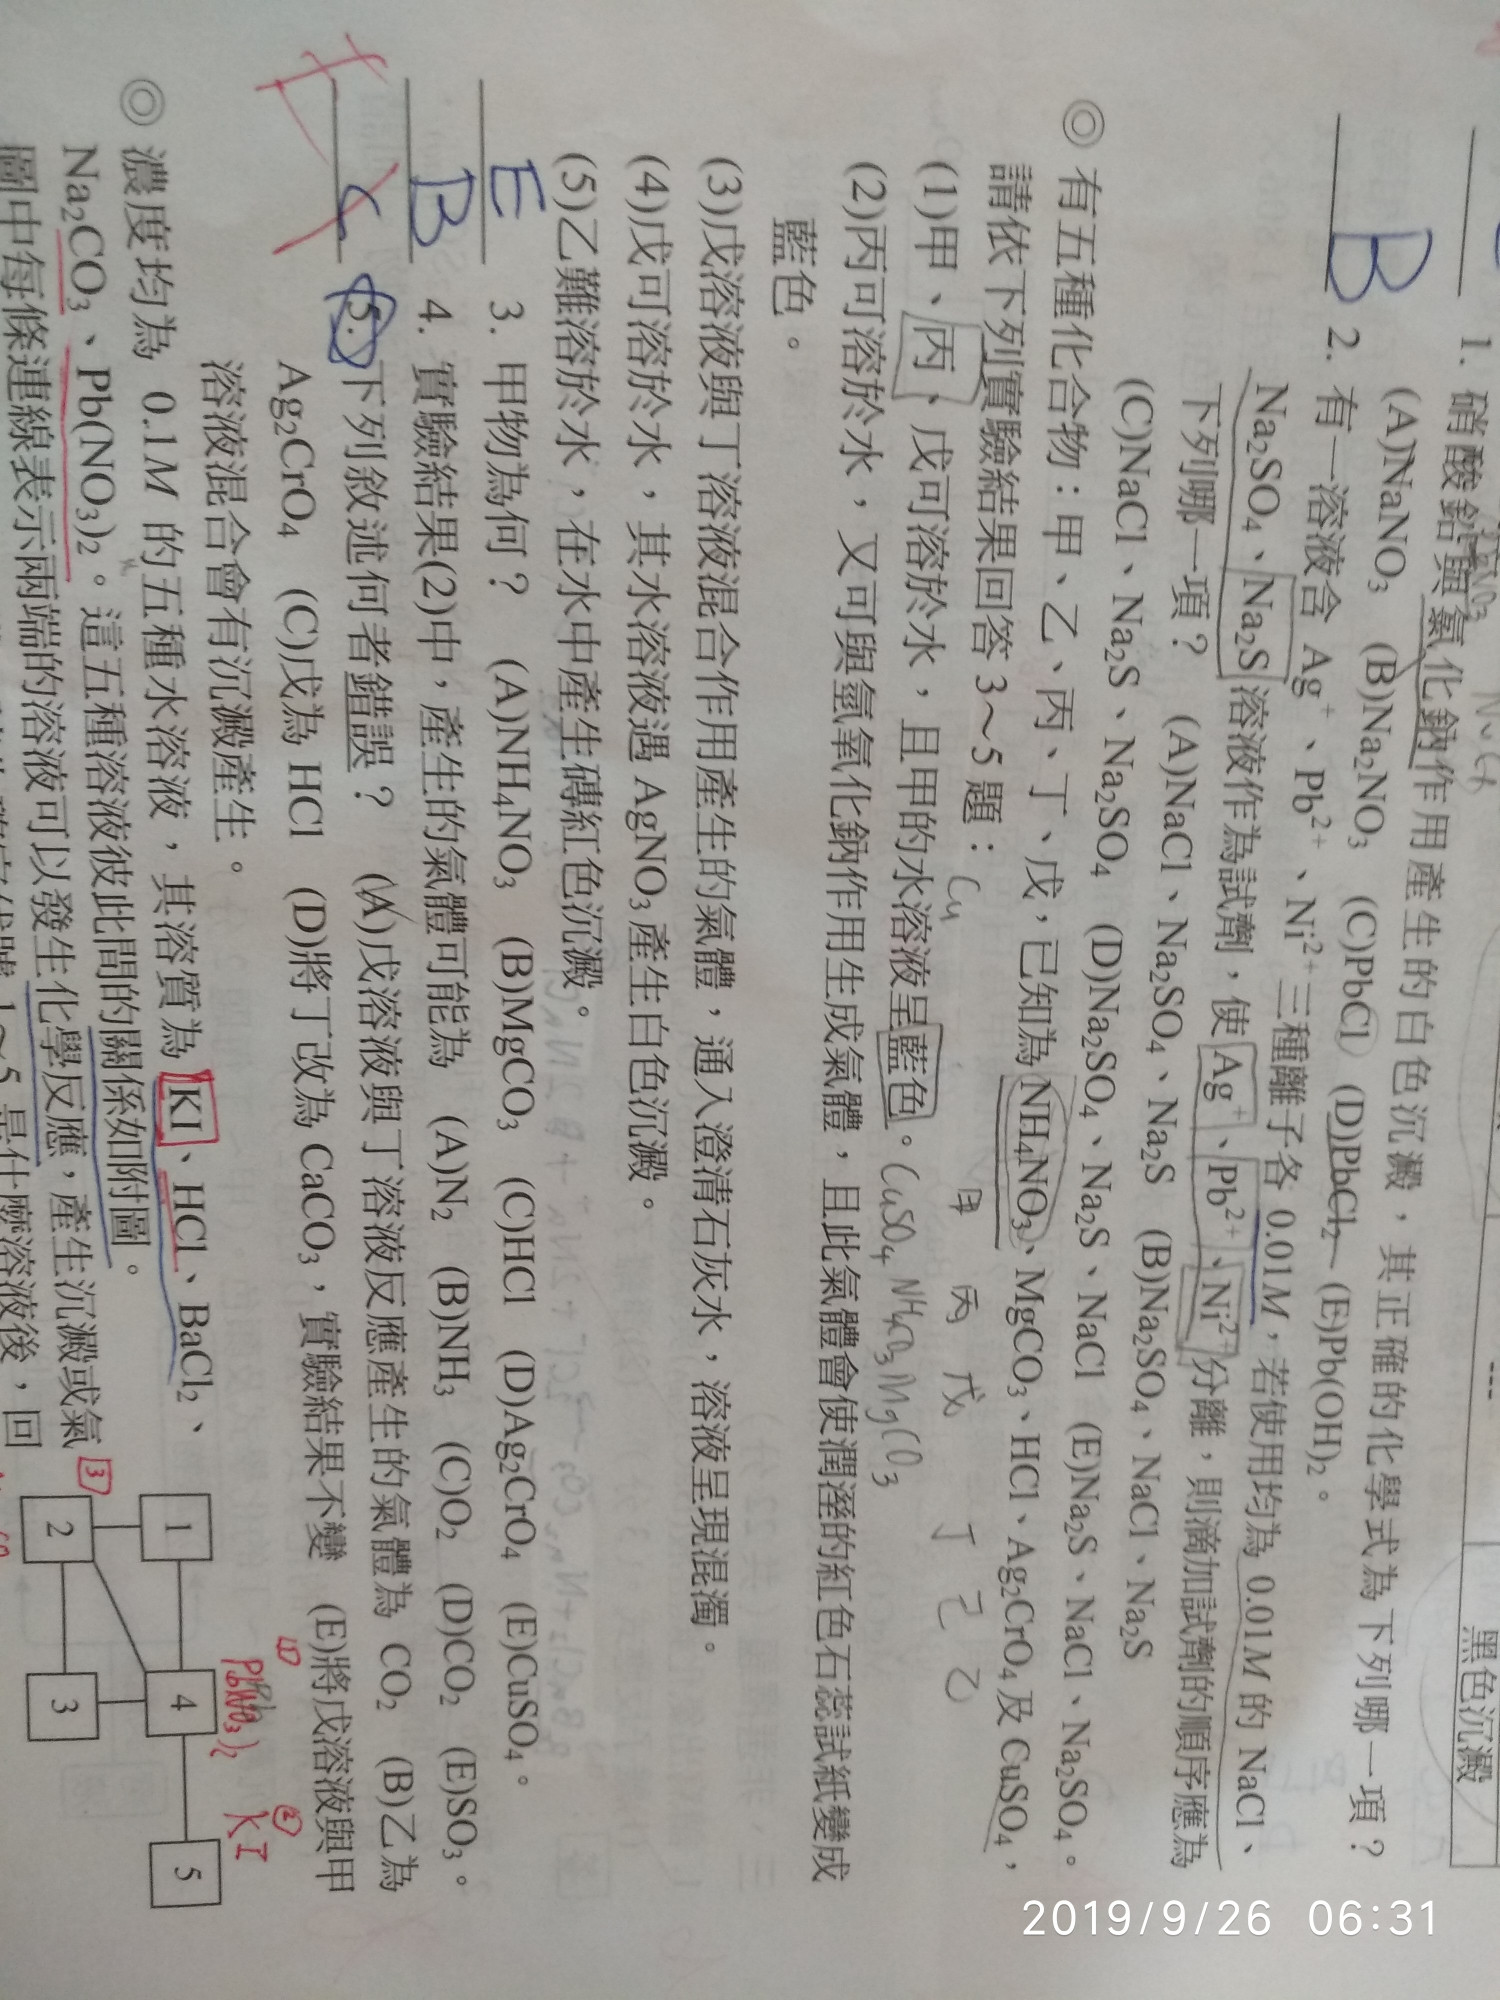 黑色沉澱
1. 硝酸鉛與氯化鈉作用產生的白色沉澱，其正確的化學式為下列哪一項？
(A)NaNO₃ (B)Na₂NO₃ (C)PbCl (D)PbCl₂ (E)Pb(OH)₂。
B 2. 有一溶液含 Ag⁺、Pb²⁺、Ni²⁺三種離子各 0.01M，若使用均為 0.01M 的 NaCl、
Na₂SO₄、Na₂S 溶液作為試劑，使 Ag⁺、Pb²⁺、Ni²⁺分離，則滴加試劑的順序應為
下列哪一項？ (A)NaCl、Na₂SO₄、Na₂S (B)Na₂SO₄、NaCl、Na₂S
(C)NaCl、Na₂S、Na₂SO₄ (D)Na₂SO₄、Na₂S、NaCl (E)Na₂S、NaCl、Na₂SO₄。
◎ 有五種化合物：甲、乙、丙、丁、戊，已知為 NH₄NO₃、MgCO₃、HCl、Ag₂CrO₄ 及 CuSO₄，
請依下列實驗結果回答 3～5 題：
Cu 甲 丙 戊 丁 己 乙
(1)甲、丙、戊可溶於水，且甲的水溶液呈藍色。
CuSO₄ NH₄O₃ MgCO₃
(2)丙可溶於水，又可與氫氧化鈉作用生成氣體，且此氣體會使潤溼的紅色石蕊試紙變成
藍色。
(3)戊溶液與丁溶液混合作用產生的氣體，通入澄清石灰水，溶液呈現混濁。
(4)戊可溶於水，其水溶液遇 AgNO₃ 產生白色沉澱。
(5)乙難溶於水，在水中產生磚紅色沉澱。
E 3. 甲物為何？ (A)NH₄NO₃ (B)MgCO₃ (C)HCl (D)Ag₂CrO₄ (E)CuSO₄。
B 4. 實驗結果(2)中，產生的氣體可能為 (A)N₂ (B)NH₃ (C)O₂ (D)CO₂ (E)SO₃。
C 5. 下列敘述何者錯誤？ (A)戊溶液與丁溶液反應產生的氣體為 CO₂ (B)乙為
Ag₂CrO₄ (C)戊為 HCl (D)將丁改為 CaCO₃，實驗結果不變 (E)將戊溶液與甲
溶液混合會有沉澱產生。
◎ 濃度均為 0.1M 的五種水溶液，其溶質為 KI、HCl、BaCl₂、
Na₂CO₃、Pb(NO₃)₂。這五種溶液彼此間的關係如附圖。
圖中每條連線表示兩端的溶液可以發生化學反應，產生沉澱或氣
1 4 5
2 3
3
1 Pb(NO₃)₂
2 KI
2019/9/26 06:31